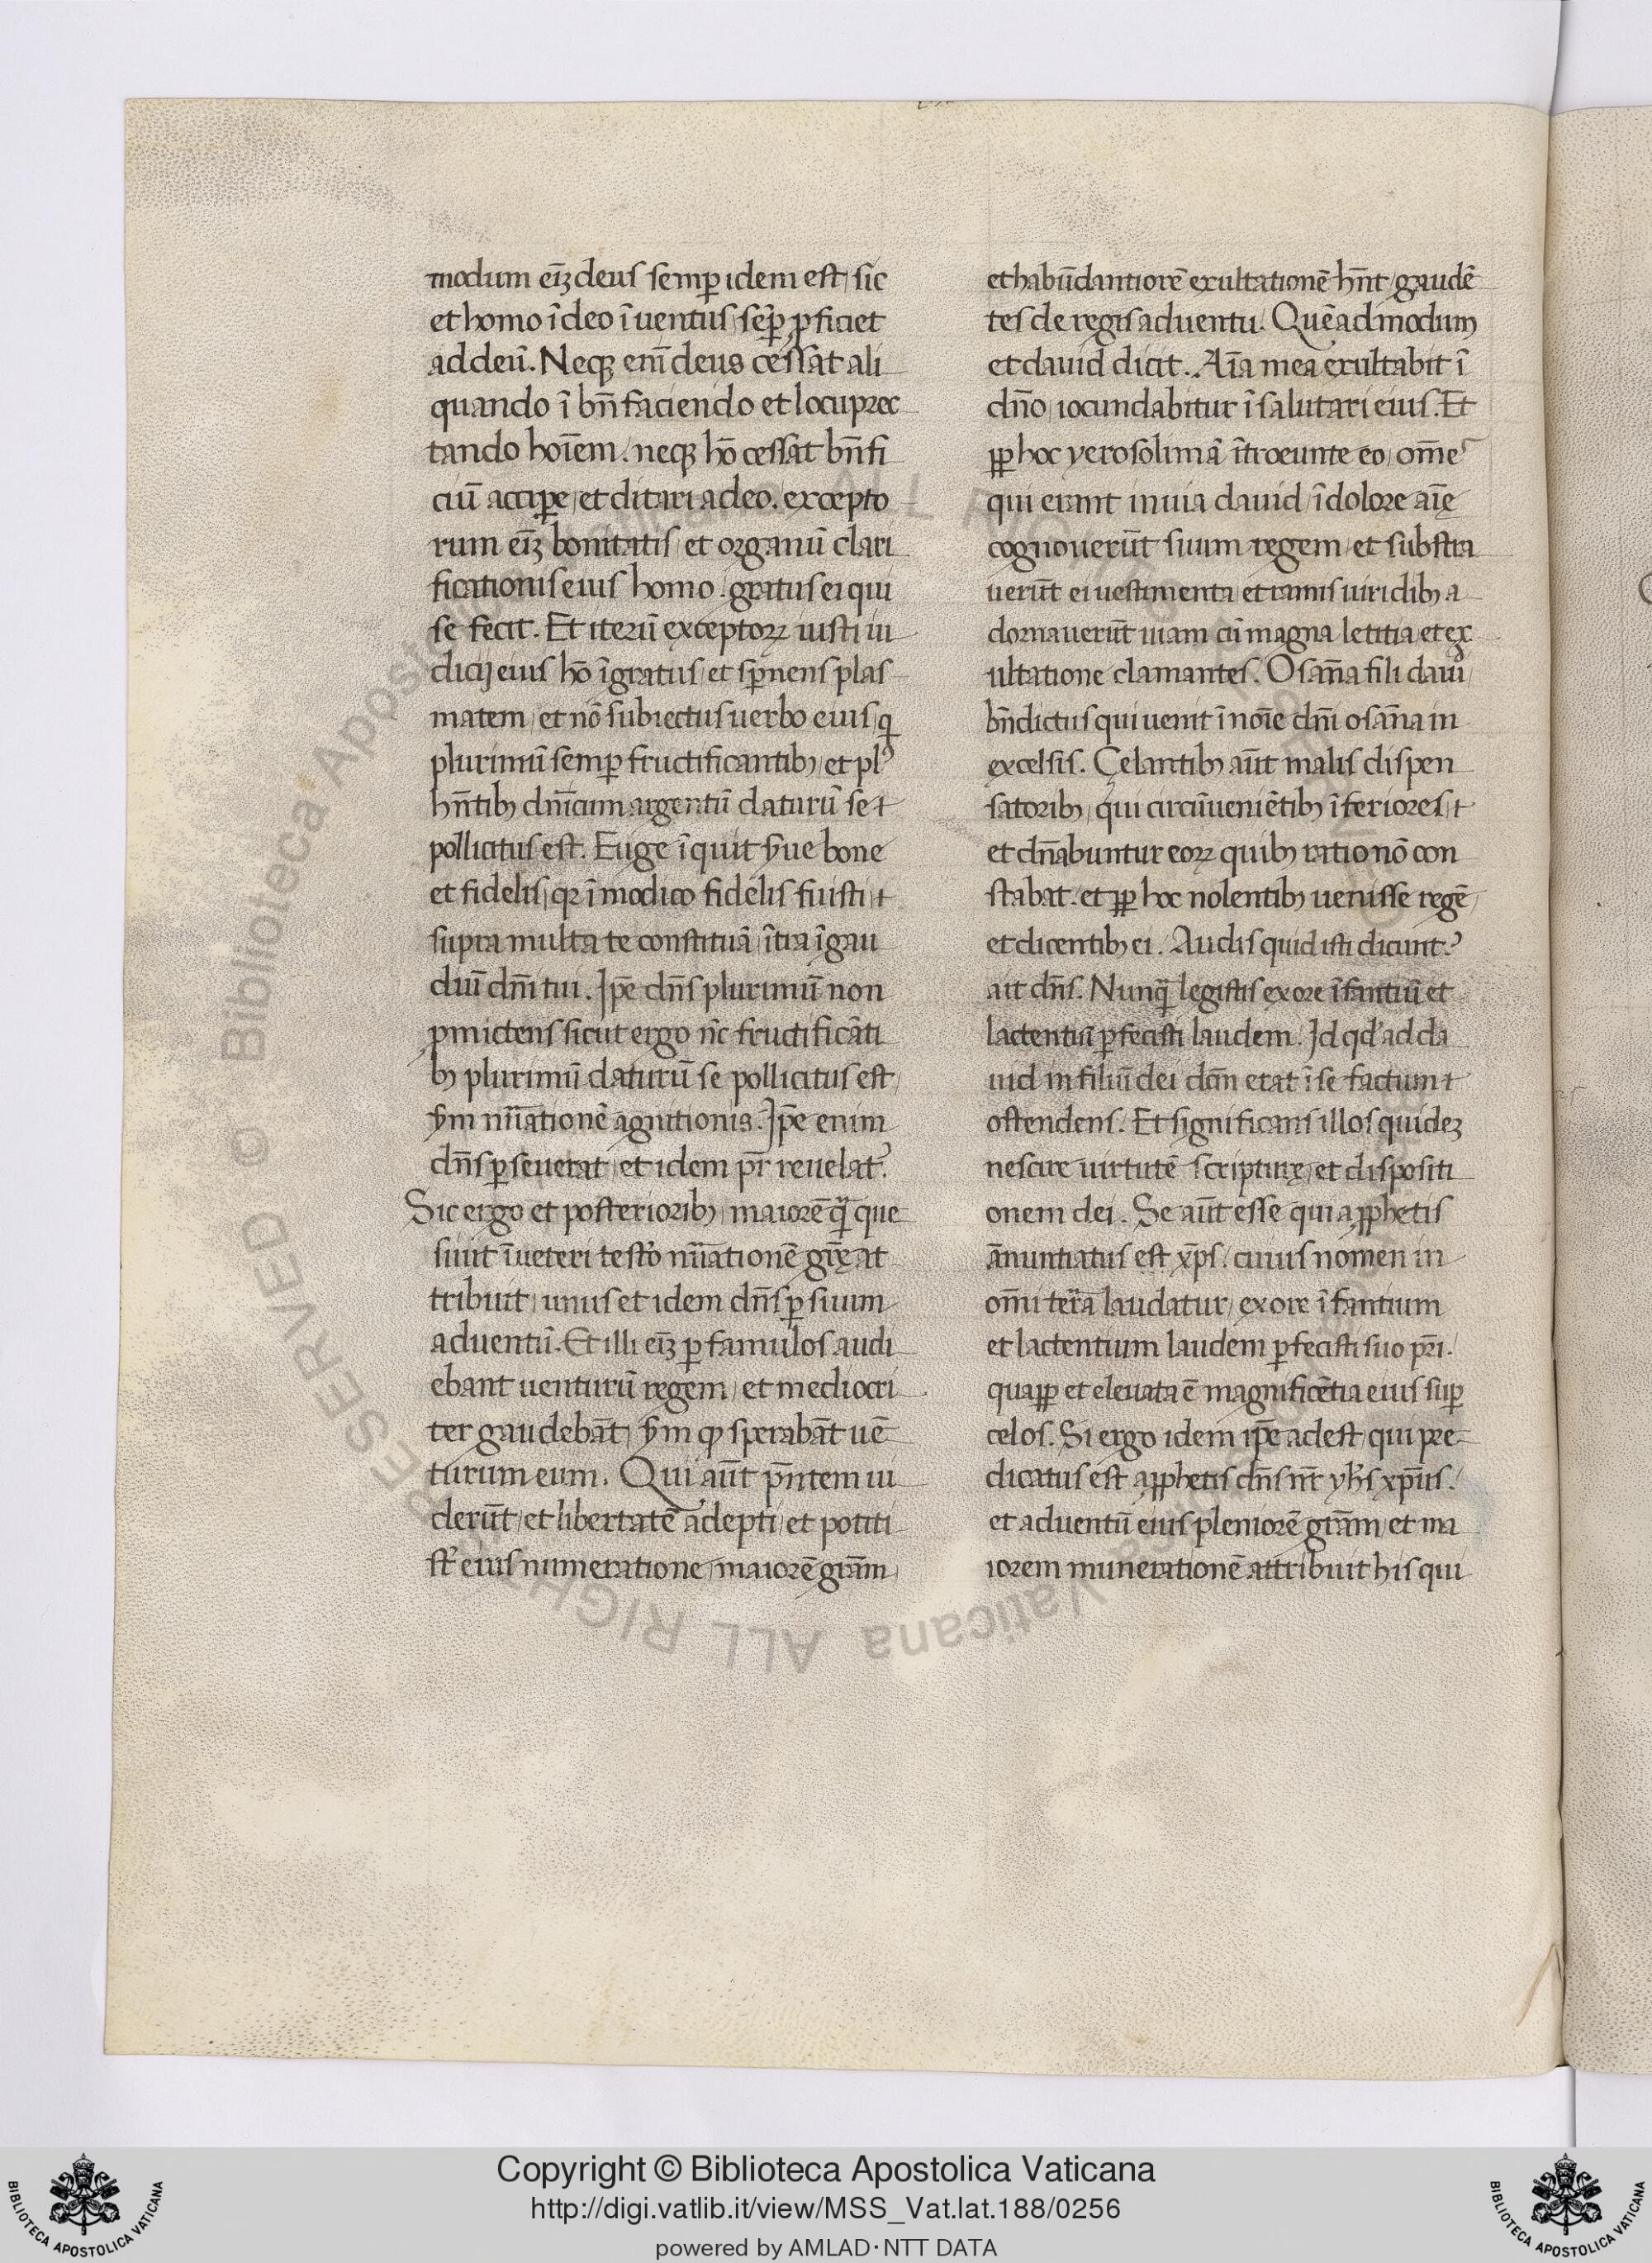 modum eīꝫ deus semꝑ idem est / sic
et homo ī deo īuentus / sēꝑ ꝓficiet
ad deū. Neqꝫ enī deus cessat ali
quando ī bn̄faciendo et locuplec
tando hoīem. neqꝫ hō cessat bn̄fi
ciū acciꝑe / et ditari a deo. excepto
rum eīꝫ bonitatis / et organū clari
ficationis eius homo. gratus ei qui
se fecit. Et iterū exceptoꝝ iusti iu
dicij eius hō īgratus / et sꝑnens plas
matem / et nō subiectus uerbo eius / q
plurimū semꝑ fructificantibꝫ / et plꝰ
hn̄tibꝫ dnīcum argentū daturū se ⁊
pollicitus est. Euge īquit ẜue bone
et fidelis / qꝛ ī modico fidelis fuisti ⁊
supra multa te constituā / ītra ī gau
diū dn̄i tui. Ip̄e dn̄s plurimū non
ꝓmictens sicut ergo nc̄ fructificāti
bꝫ plurimū daturū se pollicitus est /
ẜm nūationē agnitionis. Ip̄e enim
dn̄s ꝑseuerat / et idem pr̄ reuelat᷑.
Sic ergo et posterioribꝫ / maiorē q̄ que
fuit ī ueteri testo nūationē grę at
tribuit / unus et idem dn̄s ꝑ suum
aduentū. Et illi eīꝫ ꝑ famulos audi
ebant uenturū regem / et mediocri
ter gaudebāt / ẜm qͦ sperabāt uē
turum eum. Qui aūt pn̄tem ui
derūt / et libertatē adepti / et potiti
st᷑ eius numeratione / maiorē grām
et habūdantiorē exultationē hn̄t / gaudē
tes de regis aduentu. Quēadmodum
et dauid dicit. Aīa mea exultabit ī
dn̄o / iocundabitur ī salutari eius. Et
ꝓꝑ hoc yerosolimā ītroeunte eo / om̄es
qui erant in uia dauid / ī dolore aīę
cognouerūt suum regem / et substra
uerūt ei uestimenta / et ramis uiridibꝫ a
dornauerūt uiam cū magna letitia / et ex
ultatione clamantes. Osan̄a fili dauid
bn̄dictus qui uenit ī noīe dn̄i osan̄a in
excelsis. Celantibꝫ aūt malis dispen
satoribꝫ / qui circūueniētibꝫ īferiores / ⁊
et dn̄abuntur eoꝝ quibꝫ ratio nō con
stabat. et ꝓꝑ hoc nolentibꝫ uenisse regē /
et dicentibꝫ ei. Audis quid isti dicunt?
ait dn̄s. Nunq̄ legistis ex ore īfantiū et
lactentiū ꝑfecisti laudem. Id qd̓ ad da
uid in filiū dei dcm̄ erat ī se factum ⁊
ostendens. Et significans illos quideꝫ
nescire uirtutē scripturę / et dispositi
onem dei. Se aūt esse qui a ꝓphetis
ānuntiatus est xp̄s. cuius nomen in
om̄i terra laudatur / ex ore īfantium
et lactentium laudem ꝑfecisti suo pr̄i.
quaꝓꝑ et eleuata ē magnificētia eius suꝑ
celos. Si ergo idem ip̄e adest / qui pre
dicatus est a ꝓphetis dn̄s nr̄ yhs̄ xp̄us.
et aduentū eius pleniorē grām / et ma
iorem munerationē attribuit his qui
© Biblioteca Apostolica Vaticana ALL RIGHTS RESERVED
Copyright © Biblioteca Apostolica Vaticana
http://digi.vatlib.it/view/MSS_Vat.lat.188/0256
powered by AMLAD·NTT DATA
BIBLIOTECA APOSTOLICA VATICANA
BIBLIOTECA APOSTOLICA VATICANA